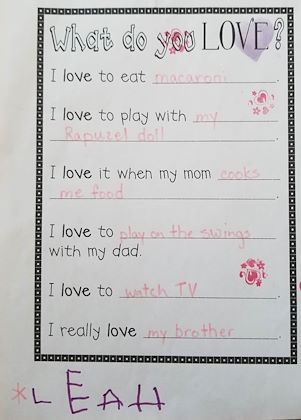 What do you LOVE?
I love to eat macaroni.
I love to play with my
Rapuzel doll.
I love it when my mom cooks
me food.
I love to play on the swings
with my dad.
I love to watch TV.
I really love my brother.
*LEAH